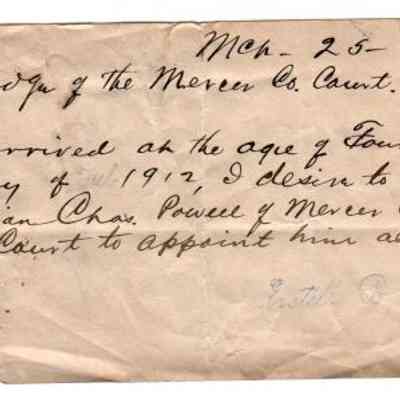 Mch - 25 -
dge of the Mercer Co. Court.
arrived at the age of Four
y of 1912, I desire to
an Chas. Powell of Mercer
Court to appoint him